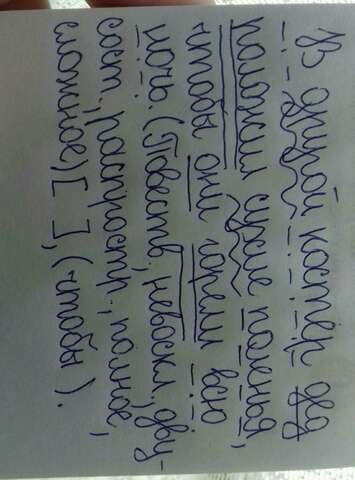 В другой костёр дед
положил сухие поленья,
чтобы они горели всю
ночь. (Повеств, невоскл, дву-
сост, распростр., полное,
сложное) [ ], (чтобы ).